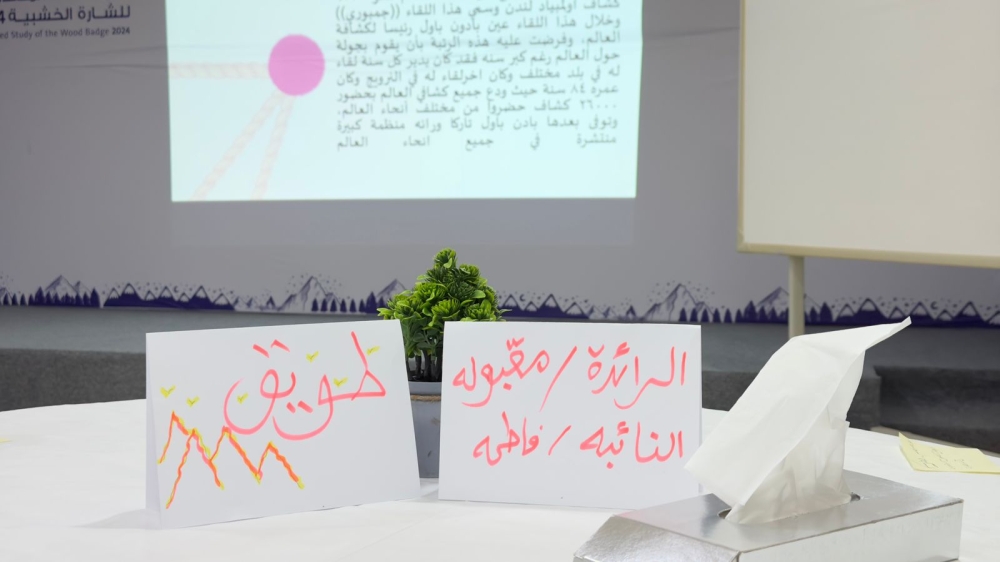 للشارة الخشبية
ed Study of the Wood Badge 2024
كشاف أولمبياد لندن وسمي هذا اللقاء ((جمبوري))
وخلال هذا اللقاء عين بادون باول رئيسا لكشافة
العالم، وفرضت عليه هذه الرتبة بأن يقوم بجولة
حول العالم رغم كبر سنه فقد كان يدير كل سنة لقاء
له في بلد مختلف وكان اخرلقاء له في النرويج وكان
عمره ٨٤ سنة حيث ودع جميع كشافي العالم بحضور
٢٦٠٠٠ كشاف حضروا من مختلف أنحاء العالم.
وتوفى بعدها بادن باول تاركا وراثه منظمة كبيرة
منتشرة في جميع انحاء العالم
طويق
الرائدة / مقبوله
النائبه / فاطمه